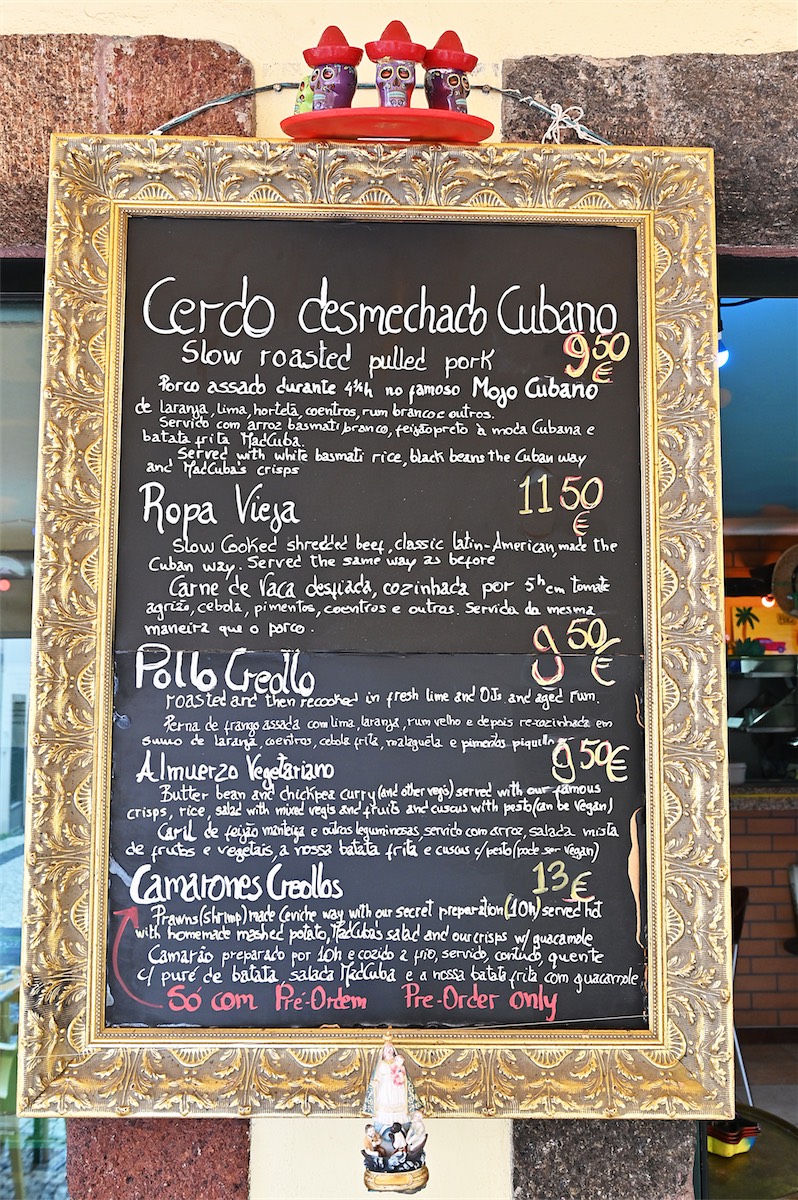 Cerdo desmechado Cubano
Slow roasted pulled pork 9,50 €
Porco assado durante 4½h no famoso Mojo Cubano
de laranja, lima, hortelã, coentros, rum branco e outros.
Servido com arroz basmati branco, feijão preto à moda Cubana e
batata frita MadCuba.
Served with white basmati rice, black beans the Cuban way
and MadCuba's crisps
Ropa Vieja 11 50 €
Slow Cooked shredded beef, classic latin-American, made the
Cuban way. Served the same way as before
Carne de Vaca desfiada, cozinhada por 5h em tomate
agrião, cebola, pimentos, coentros e outros. Servida da mesma
maneira que o porco.
Pollo Creollo 9,50 €
roasted and then recooked in fresh lime and OJs and aged rum.
Perna de frango assada com lima, laranja, rum velho e depois re-cozinhada em
sumo de laranja, coentros, cebola frita, malagueta e pimentos piquillo
Almuerzo Vegetariano 9,50€
Butter bean and chickpea curry (and other vegis) served with our famous
crisps, rice, salad with mixed vegis and fruits and cuscus with pesto (can be vegan)
Caril de feijão manteiga e outras leguminosas, servido com arroz, salada mista
de frutos e vegetais, a nossa batata frita e cuscus c/pesto (pode ser vegan)
Camarones Creollos 13 €
Prawns (shrimp) made Ceviche way with our secret preparation (10h) served hot
with homemade mashed potato, MadCuba's salad and our crisps w/ guacamole
Camarão preparado por 10h e cozido a frio, servido, contudo, quente
c/ puré de batata, salada MadCuba e a nossa batata frita com guacamole
Só com Pré-Ordem Pre-Order only